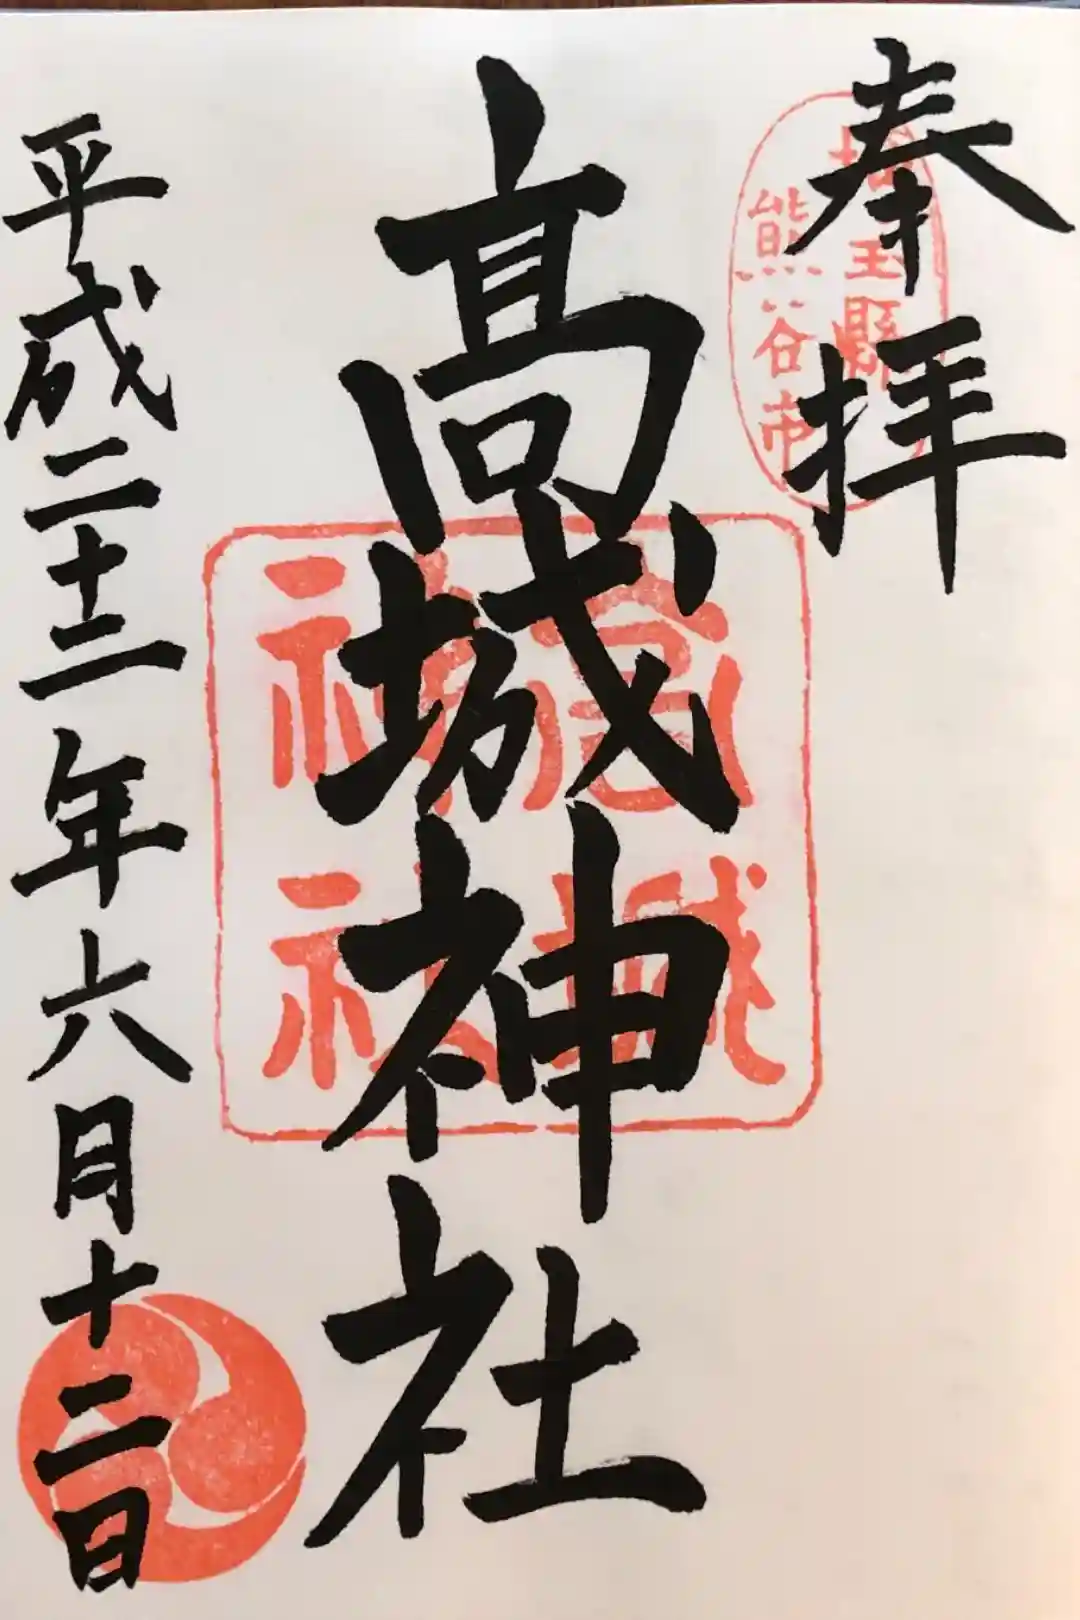 奉拝
埼玉縣
熊谷市
髙城神社
高城
神社
平成二十二年六月十二日